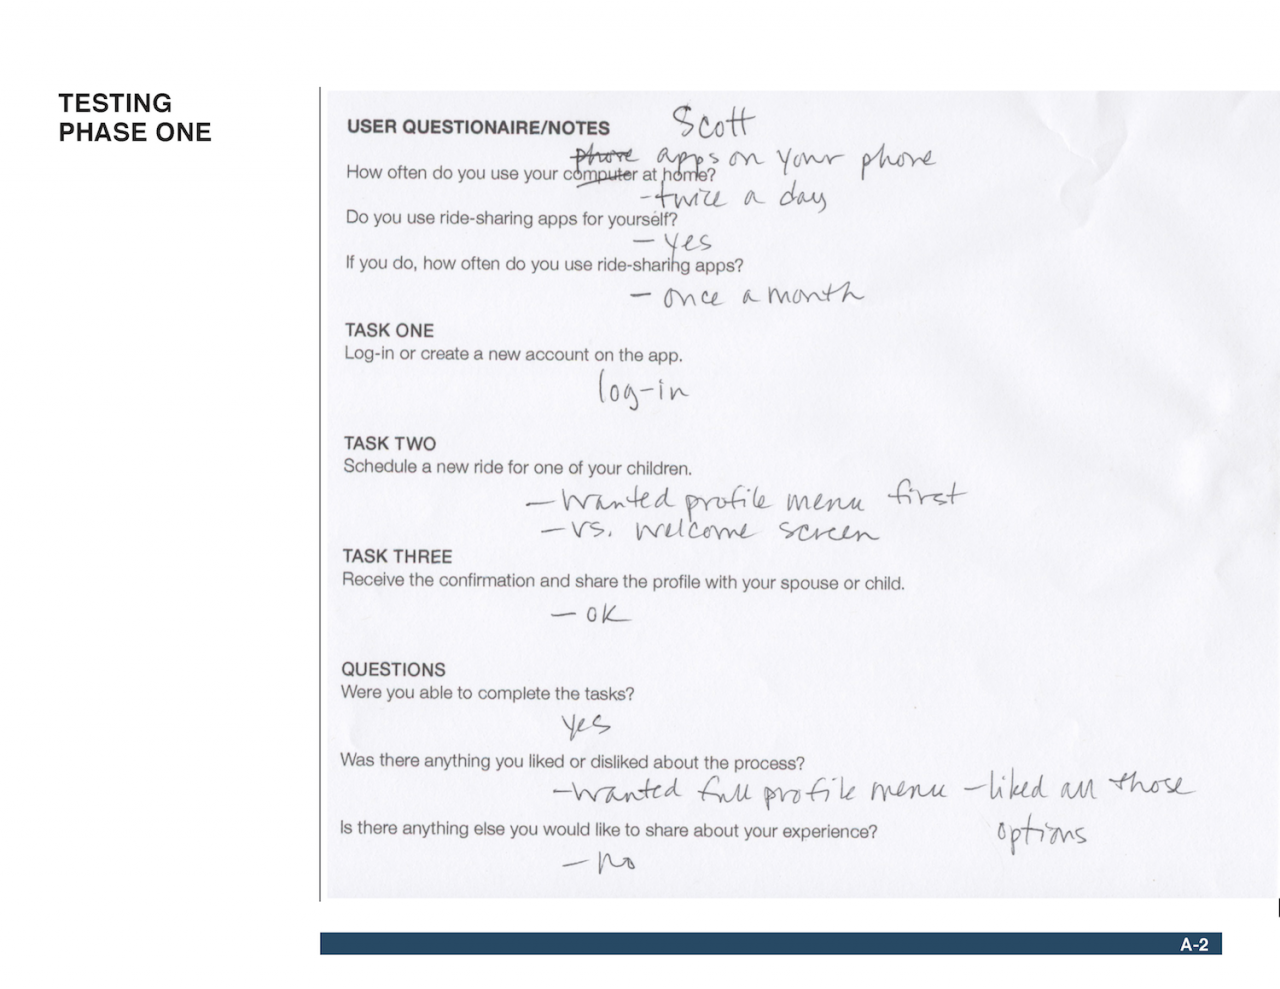 TESTING
PHASE ONE
USER QUESTIONAIRE/NOTES Scott
phone apps on your phone
How often do you use your computer at home?
-twice a day
Do you use ride-sharing apps for yourself?
- yes
If you do, how often do you use ride-sharing apps?
- once a month
TASK ONE
Log-in or create a new account on the app.
log-in
TASK TWO
Schedule a new ride for one of your children.
- wanted profile menu first
- vs. welcome screen
TASK THREE
Receive the confirmation and share the profile with your spouse or child.
- ok
QUESTIONS
Were you able to complete the tasks?
yes
Was there anything you liked or disliked about the process?
-wanted full profile menu -liked all those
Is there anything else you would like to share about your experience? options
- no
A-2